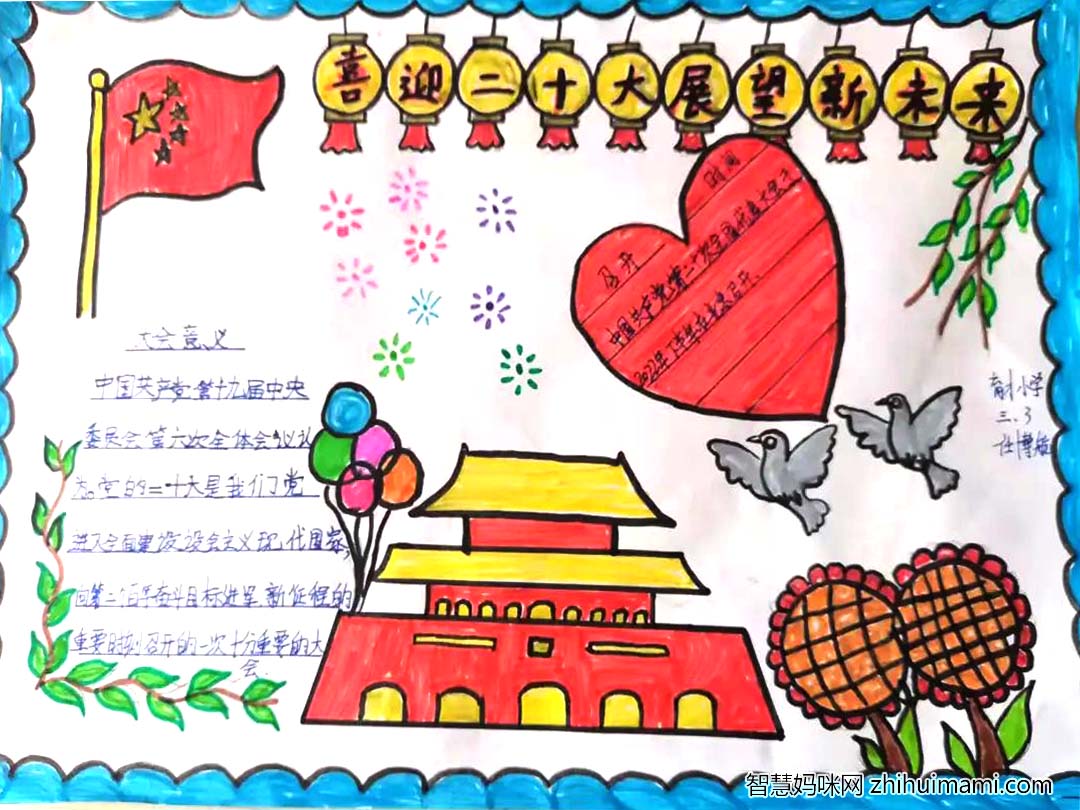 喜迎二十大展望新未来
时间
召开
中国共产党第二十次全国代表大会于
2022年下半年在北京召开.
大会意义
中国共产党第十九届中央
委员会第六次全体会议认
为党的二十大是我们党
进入全面建设设会主义现代国家
向第二个百年奋斗目标进 新征程的
重要时刻召开的一次十分重要的大
会.
育才小学
三.3
任博
智慧妈咪网 zhihuimami.com